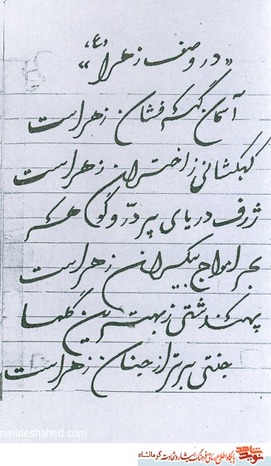 «در وصف زهرا(ع)»
آسمان گهرفشان زهراست
کهکشانی ز اختران زهراست
ژرف دریای پر درّ و گوهر
بحر امواج بیکران زهراست
پهندشتی ز بهترین گلها
جنتی برتر از جنان زهراست
navideshahed.com
نوید شاهد
پایگاه اطلاع رسانی فرهنگ ایثار و شهادت کرمانشاه